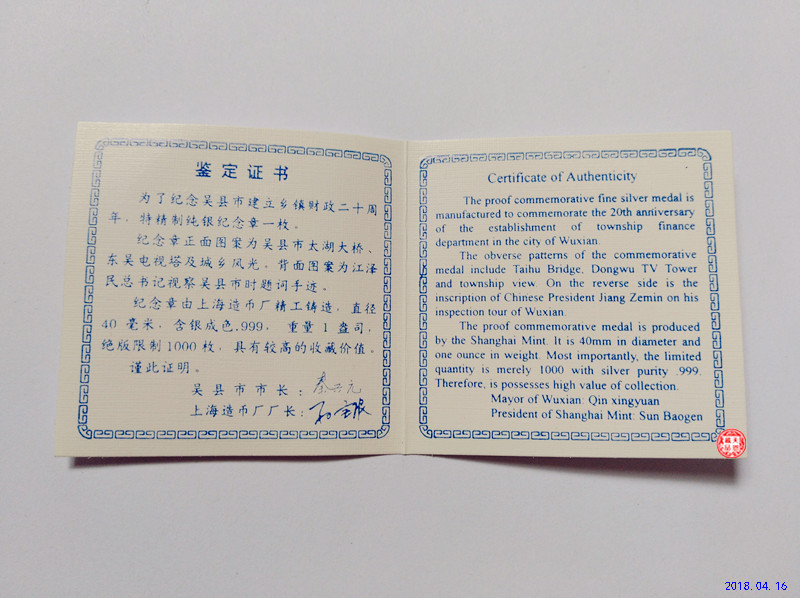 鉴定证书
为了纪念吴县市建立乡镇财政二十周
年，特精制纯银纪念章一枚。
纪念章正面图案为吴县市太湖大桥、
东吴电视塔及城乡风光，背面图案为江泽
民总书记视察吴县市时题词手迹。
纪念章由上海造币厂精工铸造，直径
40毫米，含银成色.999，重量1盎司，
绝版限制1000枚，具有较高的收藏价值。
谨此证明。
吴县市市长：
上海造币厂厂长：
Certificate of Authenticity
The proof commemorative fine silver medal is
manufactured to commemorate the 20th anniversary
of the establishment of township finance
department in the city of Wuxian.
The obverse patterns of the commemorative
medal include Taihu Bridge, Dongwu TV Tower
and township view. On the reverse side is the
inscription of Chinese President Jiang Zemin on his
inspection tour of Wuxian.
The proof commemorative medal is produced
by the Shanghai Mint. It is 40mm in diameter and
one ounce in weight. Most importantly, the limited
quantity is merely 1000 with silver purity .999.
Therefore, is possesses high value of collection.
Mayor of Wuxian: Qin xingyuan
President of Shanghai Mint: Sun Baogen
2018.04.16